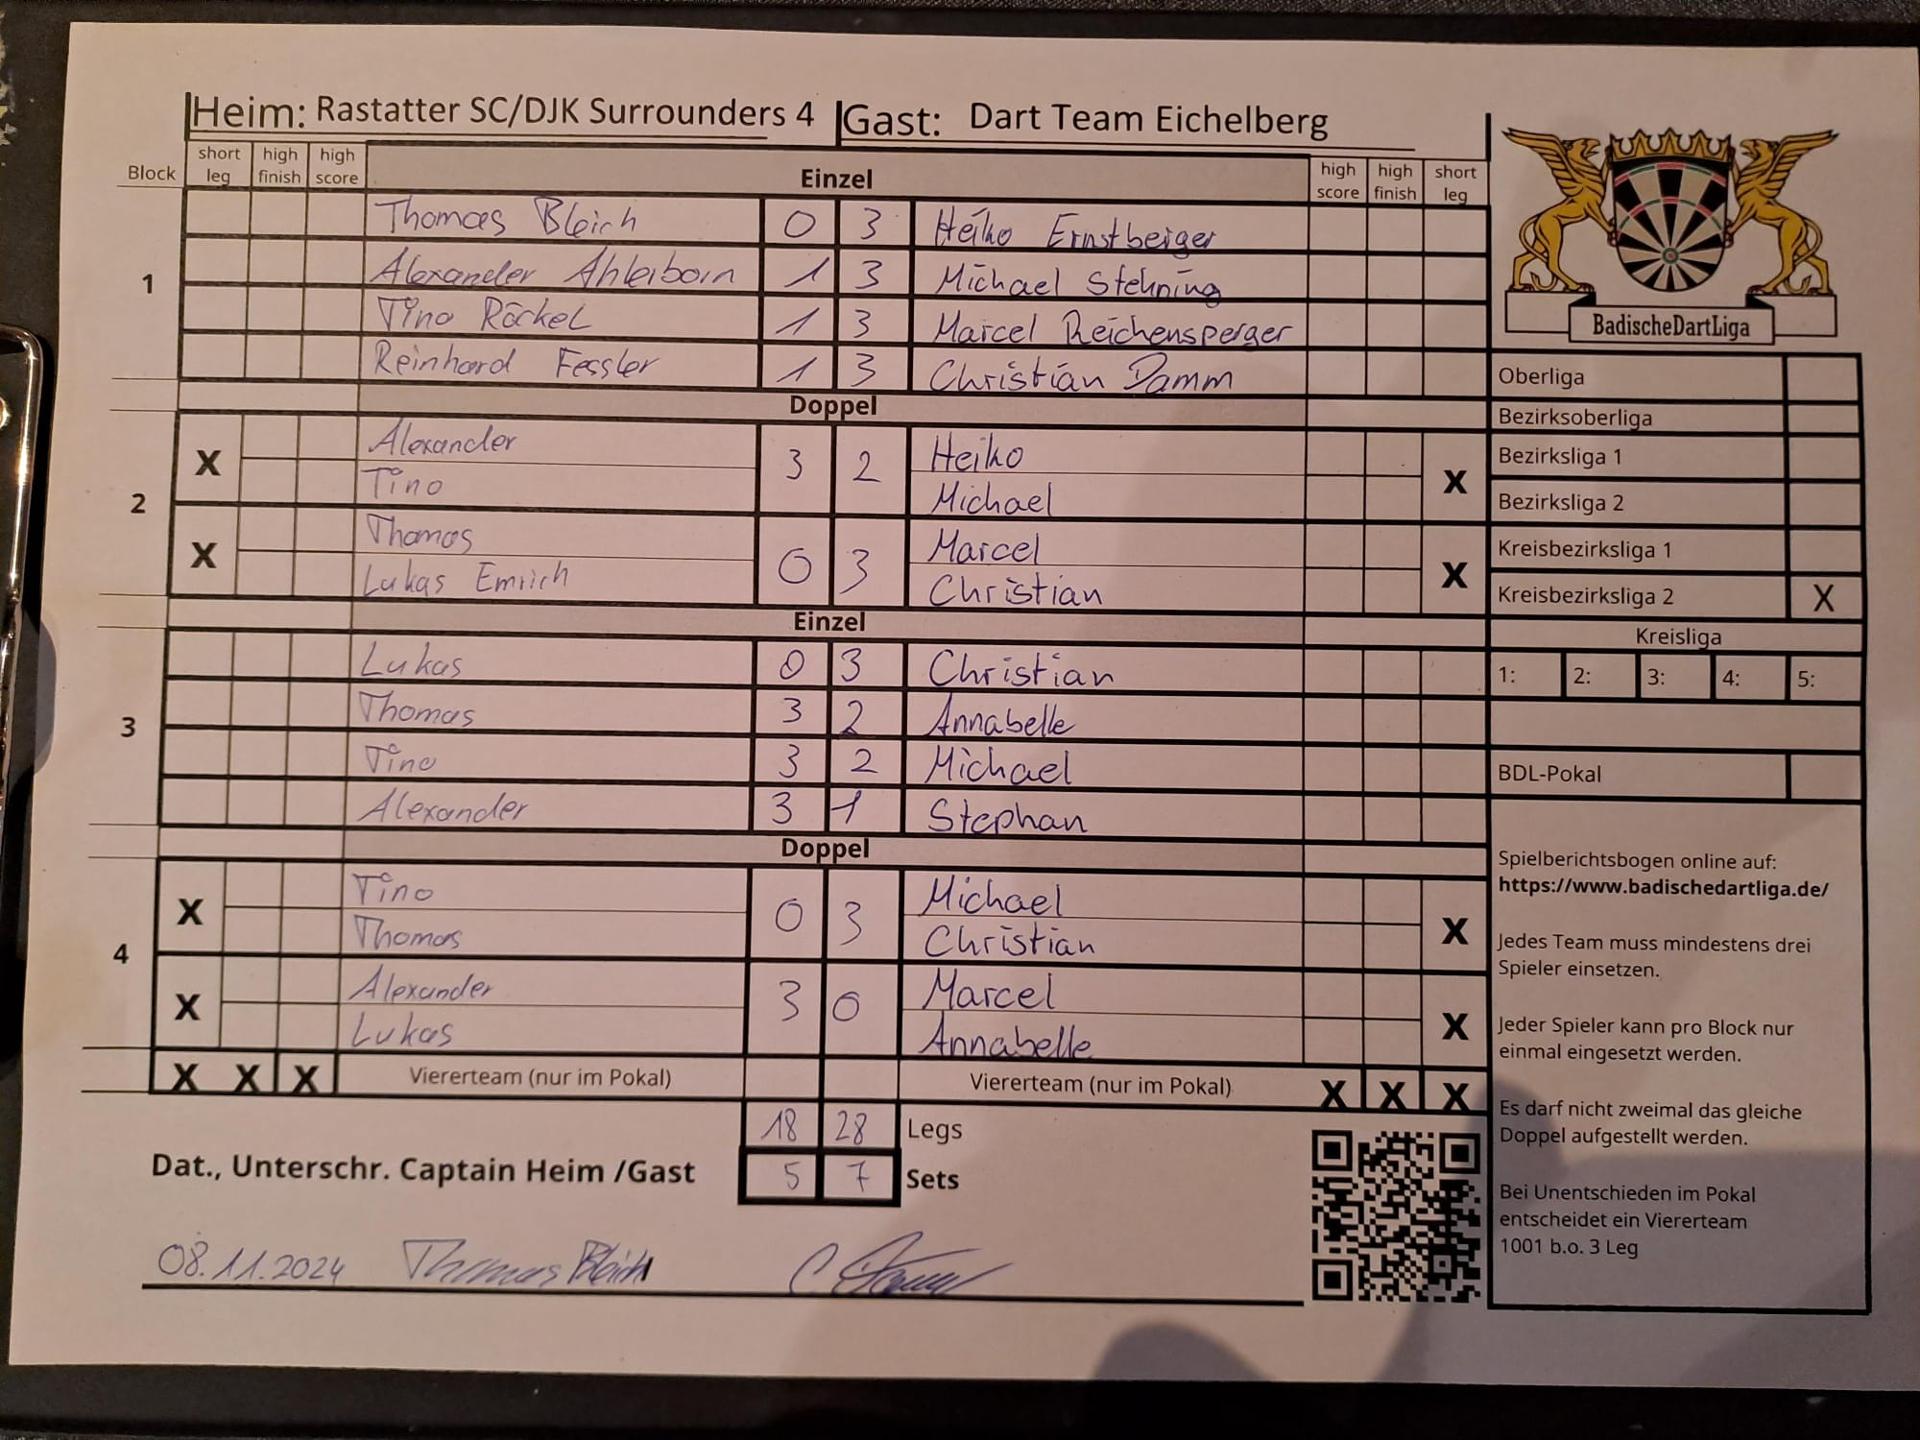 Heim: Rastatter SC/DJK Surrounders 4 Gast: Dart Team Eichelberg
Block short leg high finish high score Einzel high score high finish short leg
1
Thomas Bleich 0 3 Heiko Ernstberger
Alexander Ahlerborn 1 3 Michael Stehning
Tino Röckel 1 3 Marcel Reichensperger
Reinhard Fessler 1 3 Christian Damm
Doppel
2
X Alexander 3 2 Heiko X
Tino Michael
X Thomas 0 3 Marcel X
Lukas Emrich Christian
Einzel
3
Lukas 0 3 Christian
Thomas 3 2 Annabelle
Tino 3 2 Michael
Alexander 3 1 Stephan
Doppel
4
X Tino 0 3 Michael X
Thomas Christian
X Alexander 3 0 Marcel X
Lukas Annabelle
X X X Viererteam (nur im Pokal) Viererteam (nur im Pokal) X X X
18 28 Legs
Dat., Unterschr. Captain Heim /Gast 5 7 Sets
08.11.2024 Thomas Bleich
BadischeDartLiga
Oberliga
Bezirksoberliga
Bezirksliga 1
Bezirksliga 2
Kreisbezirksliga 1
Kreisbezirksliga 2 X
Kreisliga
1: 2: 3: 4: 5:
BDL-Pokal
Spielberichtsbogen online auf:
https://www.badischedartliga.de/
Jedes Team muss mindestens drei
Spieler einsetzen.
Jeder Spieler kann pro Block nur
einmal eingesetzt werden.
Es darf nicht zweimal das gleiche
Doppel aufgestellt werden.
Bei Unentschieden im Pokal
entscheidet ein Viererteam
1001 b.o. 3 Leg